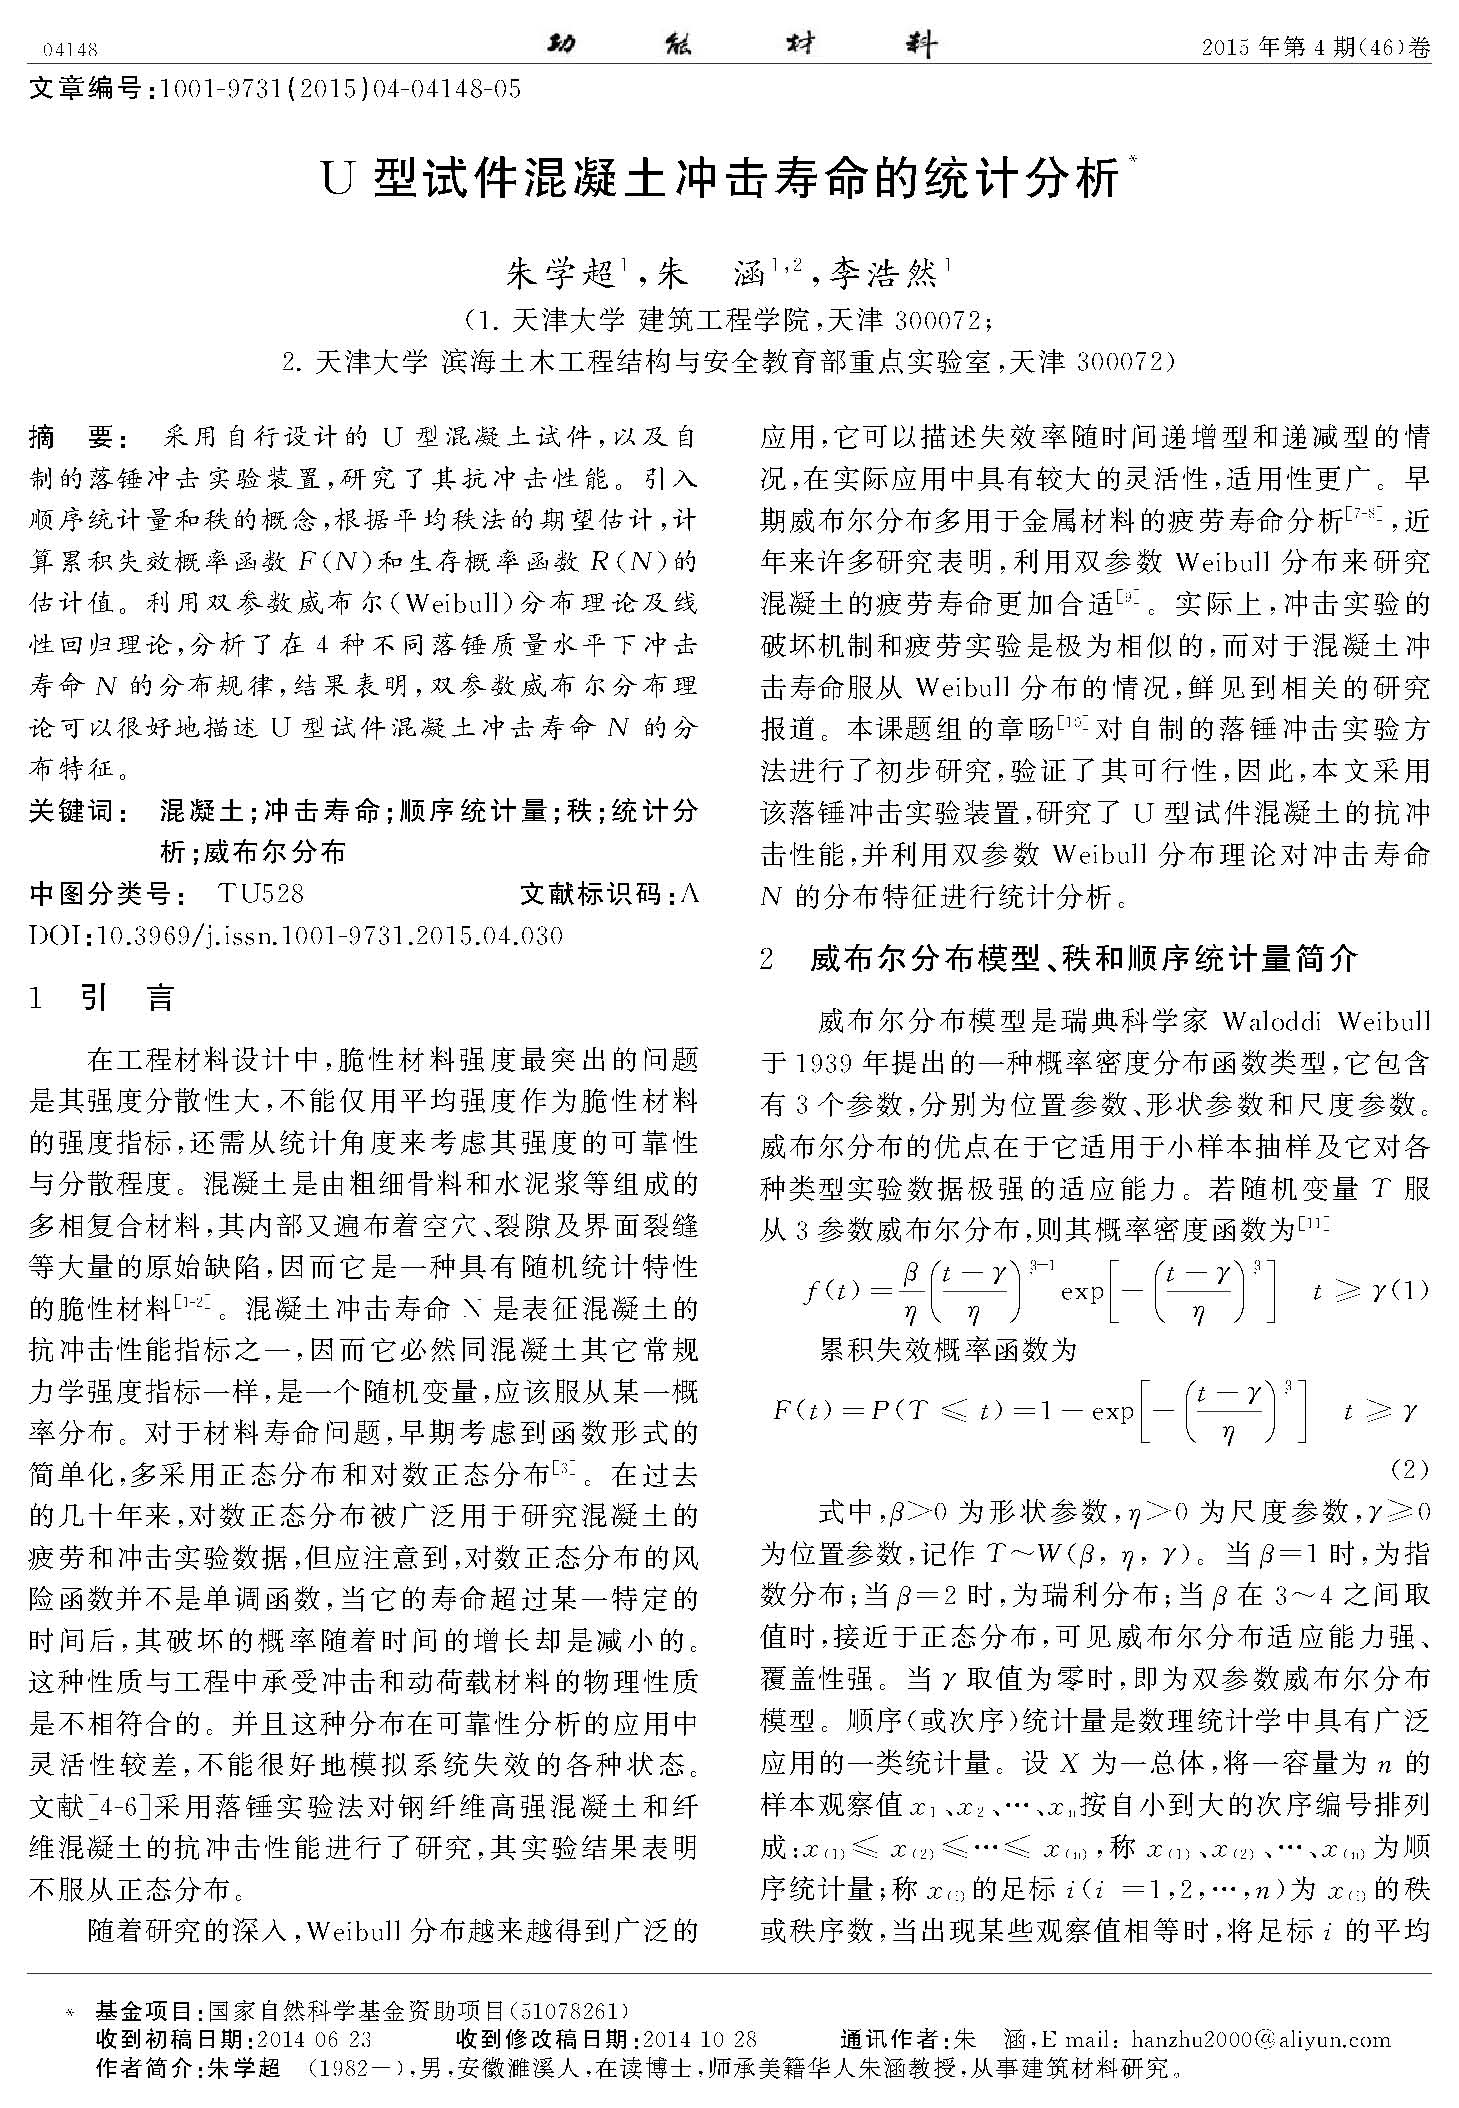 04148
功能材料
2015年第4期(46)卷
文章编号:1001-9731(2015)04-04148-05
U型试件混凝土冲击寿命的统计分析*
朱学超1,朱 涵1,2,李浩然1
(1. 天津大学 建筑工程学院,天津 300072;
2. 天津大学 滨海土木工程结构与安全教育部重点实验室,天津 300072)
摘 要: 采用自行设计的 U 型混凝土试件,以及自
制的落锤冲击实验装置,研究了其抗冲击性能。引入
顺序统计量和秩的概念,根据平均秩法的期望估计,计
算累积失效概率函数 F(N)和生存概率函数 R(N)的
估计值。利用双参数威布尔(Weibull)分布理论及线
性回归理论,分析了在 4 种不同落锤质量水平下冲击
寿命 N 的分布规律,结果表明,双参数威布尔分布理
论可以很好地描述 U 型试件混凝土冲击寿命 N 的分
布特征。
关键词: 混凝土;冲击寿命;顺序统计量;秩;统计分
析;威布尔分布
中图分类号: TU528 文献标识码:A
DOI:10.3969/j.issn.1001-9731.2015.04.030
1 引 言
在工程材料设计中,脆性材料强度最突出的问题
是其强度分散性大,不能仅用平均强度作为脆性材料
的强度指标,还需从统计角度来考虑其强度的可靠性
与分散程度。混凝土是由粗细骨料和水泥浆等组成的
多相复合材料,其内部又遍布着空穴、裂隙及界面裂缝
等大量的原始缺陷,因而它是一种具有随机统计特性
的脆性材料[1-2]。混凝土冲击寿命 N 是表征混凝土的
抗冲击性能指标之一,因而它必然同混凝土其它常规
力学强度指标一样,是一个随机变量,应该服从某一概
率分布。对于材料寿命问题,早期考虑到函数形式的
简单化,多采用正态分布和对数正态分布[3]。在过去
的几十年来,对数正态分布被广泛用于研究混凝土的
疲劳和冲击实验数据,但应注意到,对数正态分布的风
险函数并不是单调函数,当它的寿命超过某一特定的
时间后,其破坏的概率随着时间的增长却是减小的。
这种性质与工程中承受冲击和动荷载材料的物理性质
是不相符合的。并且这种分布在可靠性分析的应用中
灵活性较差,不能很好地模拟系统失效的各种状态。
文献[4-6]采用落锤实验法对钢纤维高强混凝土和纤
维混凝土的抗冲击性能进行了研究,其实验结果表明
不服从正态分布。
随着研究的深入,Weibull 分布越来越得到广泛的
应用,它可以描述失效率随时间递增型和递减型的情
况,在实际应用中具有较大的灵活性,适用性更广。早
期威布尔分布多用于金属材料的疲劳寿命分析[7-8],近
年来许多研究表明,利用双参数 Weibull 分布来研究
混凝土的疲劳寿命更加合适[9]。实际上,冲击实验的
破坏机制和疲劳实验是极为相似的,而对于混凝土冲
击寿命服从 Weibull 分布的情况,鲜见到相关的研究
报道。本课题组的章旸[10]对自制的落锤冲击实验方
法进行了初步研究,验证了其可行性,因此,本文采用
该落锤冲击实验装置,研究了 U 型试件混凝土的抗冲
击性能,并利用双参数 Weibull 分布理论对冲击寿命
N 的分布特征进行统计分析。
2 威布尔分布模型、秩和顺序统计量简介
威布尔分布模型是瑞典科学家 Waloddi Weibull
于 1939 年提出的一种概率密度分布函数类型,它包含
有 3 个参数,分别为位置参数、形状参数和尺度参数。
威布尔分布的优点在于它适用于小样本抽样及它对各
种类型实验数据极强的适应能力。若随机变量 T 服
从 3 参数威布尔分布,则其概率密度函数为[11]
f(t)=β/η((t-γ)/η)^(β-1) exp[-((t-γ)/η)^β] t≥γ(1)
累积失效概率函数为
F(t)=P(T≤t)=1-exp[-((t-γ)/η)^β] t≥γ
(2)
式中,β>0 为形状参数,η>0 为尺度参数,γ≥0
为位置参数,记作 T~W(β, η, γ)。当 β=1 时,为指
数分布;当 β=2 时,为瑞利分布;当 β 在 3~4 之间取
值时,接近于正态分布,可见威布尔分布适应能力强、
覆盖性强。当 γ 取值为零时,即为双参数威布尔分布
模型。顺序(或次序)统计量是数理统计学中具有广泛
应用的一类统计量。设 X 为一总体,将一容量为 n 的
样本观察值 x1、x2、…、xn按自小到大的次序编号排列
成:x(1)≤ x(2)≤…≤ x(n),称 x(1)、x(2)、…、x(n)为顺
序统计量;称 x(i)的足标 i(i =1,2,…,n)为 x(i)的秩
或秩序数,当出现某些观察值相等时,将足标 i 的平均
* 基金项目:国家自然科学基金资助项目(51078261)
收到初稿日期:2014 06 23 收到修改稿日期:2014 10 28 通讯作者:朱 涵,E mail: hanzhu2000@aliyun.com
作者简介:朱学超 (1982-),男,安徽濉溪人,在读博士,师承美籍华人朱涵教授,从事建筑材料研究。